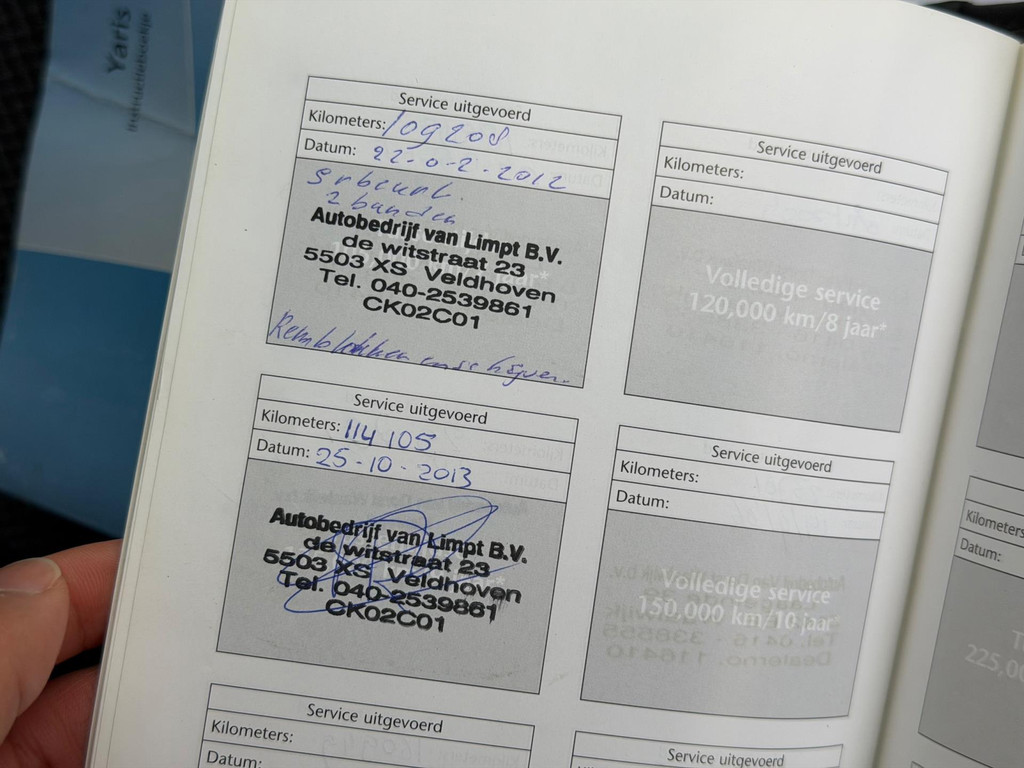 Yaris
Instructieboekje
Service uitgevoerd
Kilometers: 109208
Datum: 22-0-2-2012
2 banden
Autobedrijf van Limpt B.V.
de witstraat 23
5503 XS Veldhoven
Tel. 040-2539861
CK02C01
Remblokken en schijven.
Service uitgevoerd
Kilometers:
Datum:
Volledige service
120,000 km/8 jaar*
Service uitgevoerd
Kilometers: 114 105
Datum: 25-10-2013
Autobedrijf van Limpt B.V.
de witstraat 23
5503 XS Veldhoven
Tel. 040-2539861
CK02C01
Service uitgevoerd
Kilometers:
Datum:
Volledige service
150,000 km/10 jaar*
Service uitgevoerd
Kilometers:
Datum:
Service uitgevoerd
Kilometers
Datum:
225,00